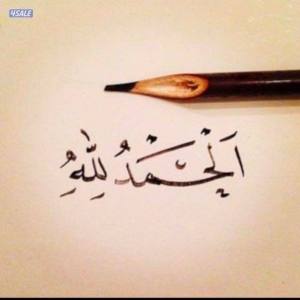 4SALE
اَلْحَمْدُ لِلّٰهِ